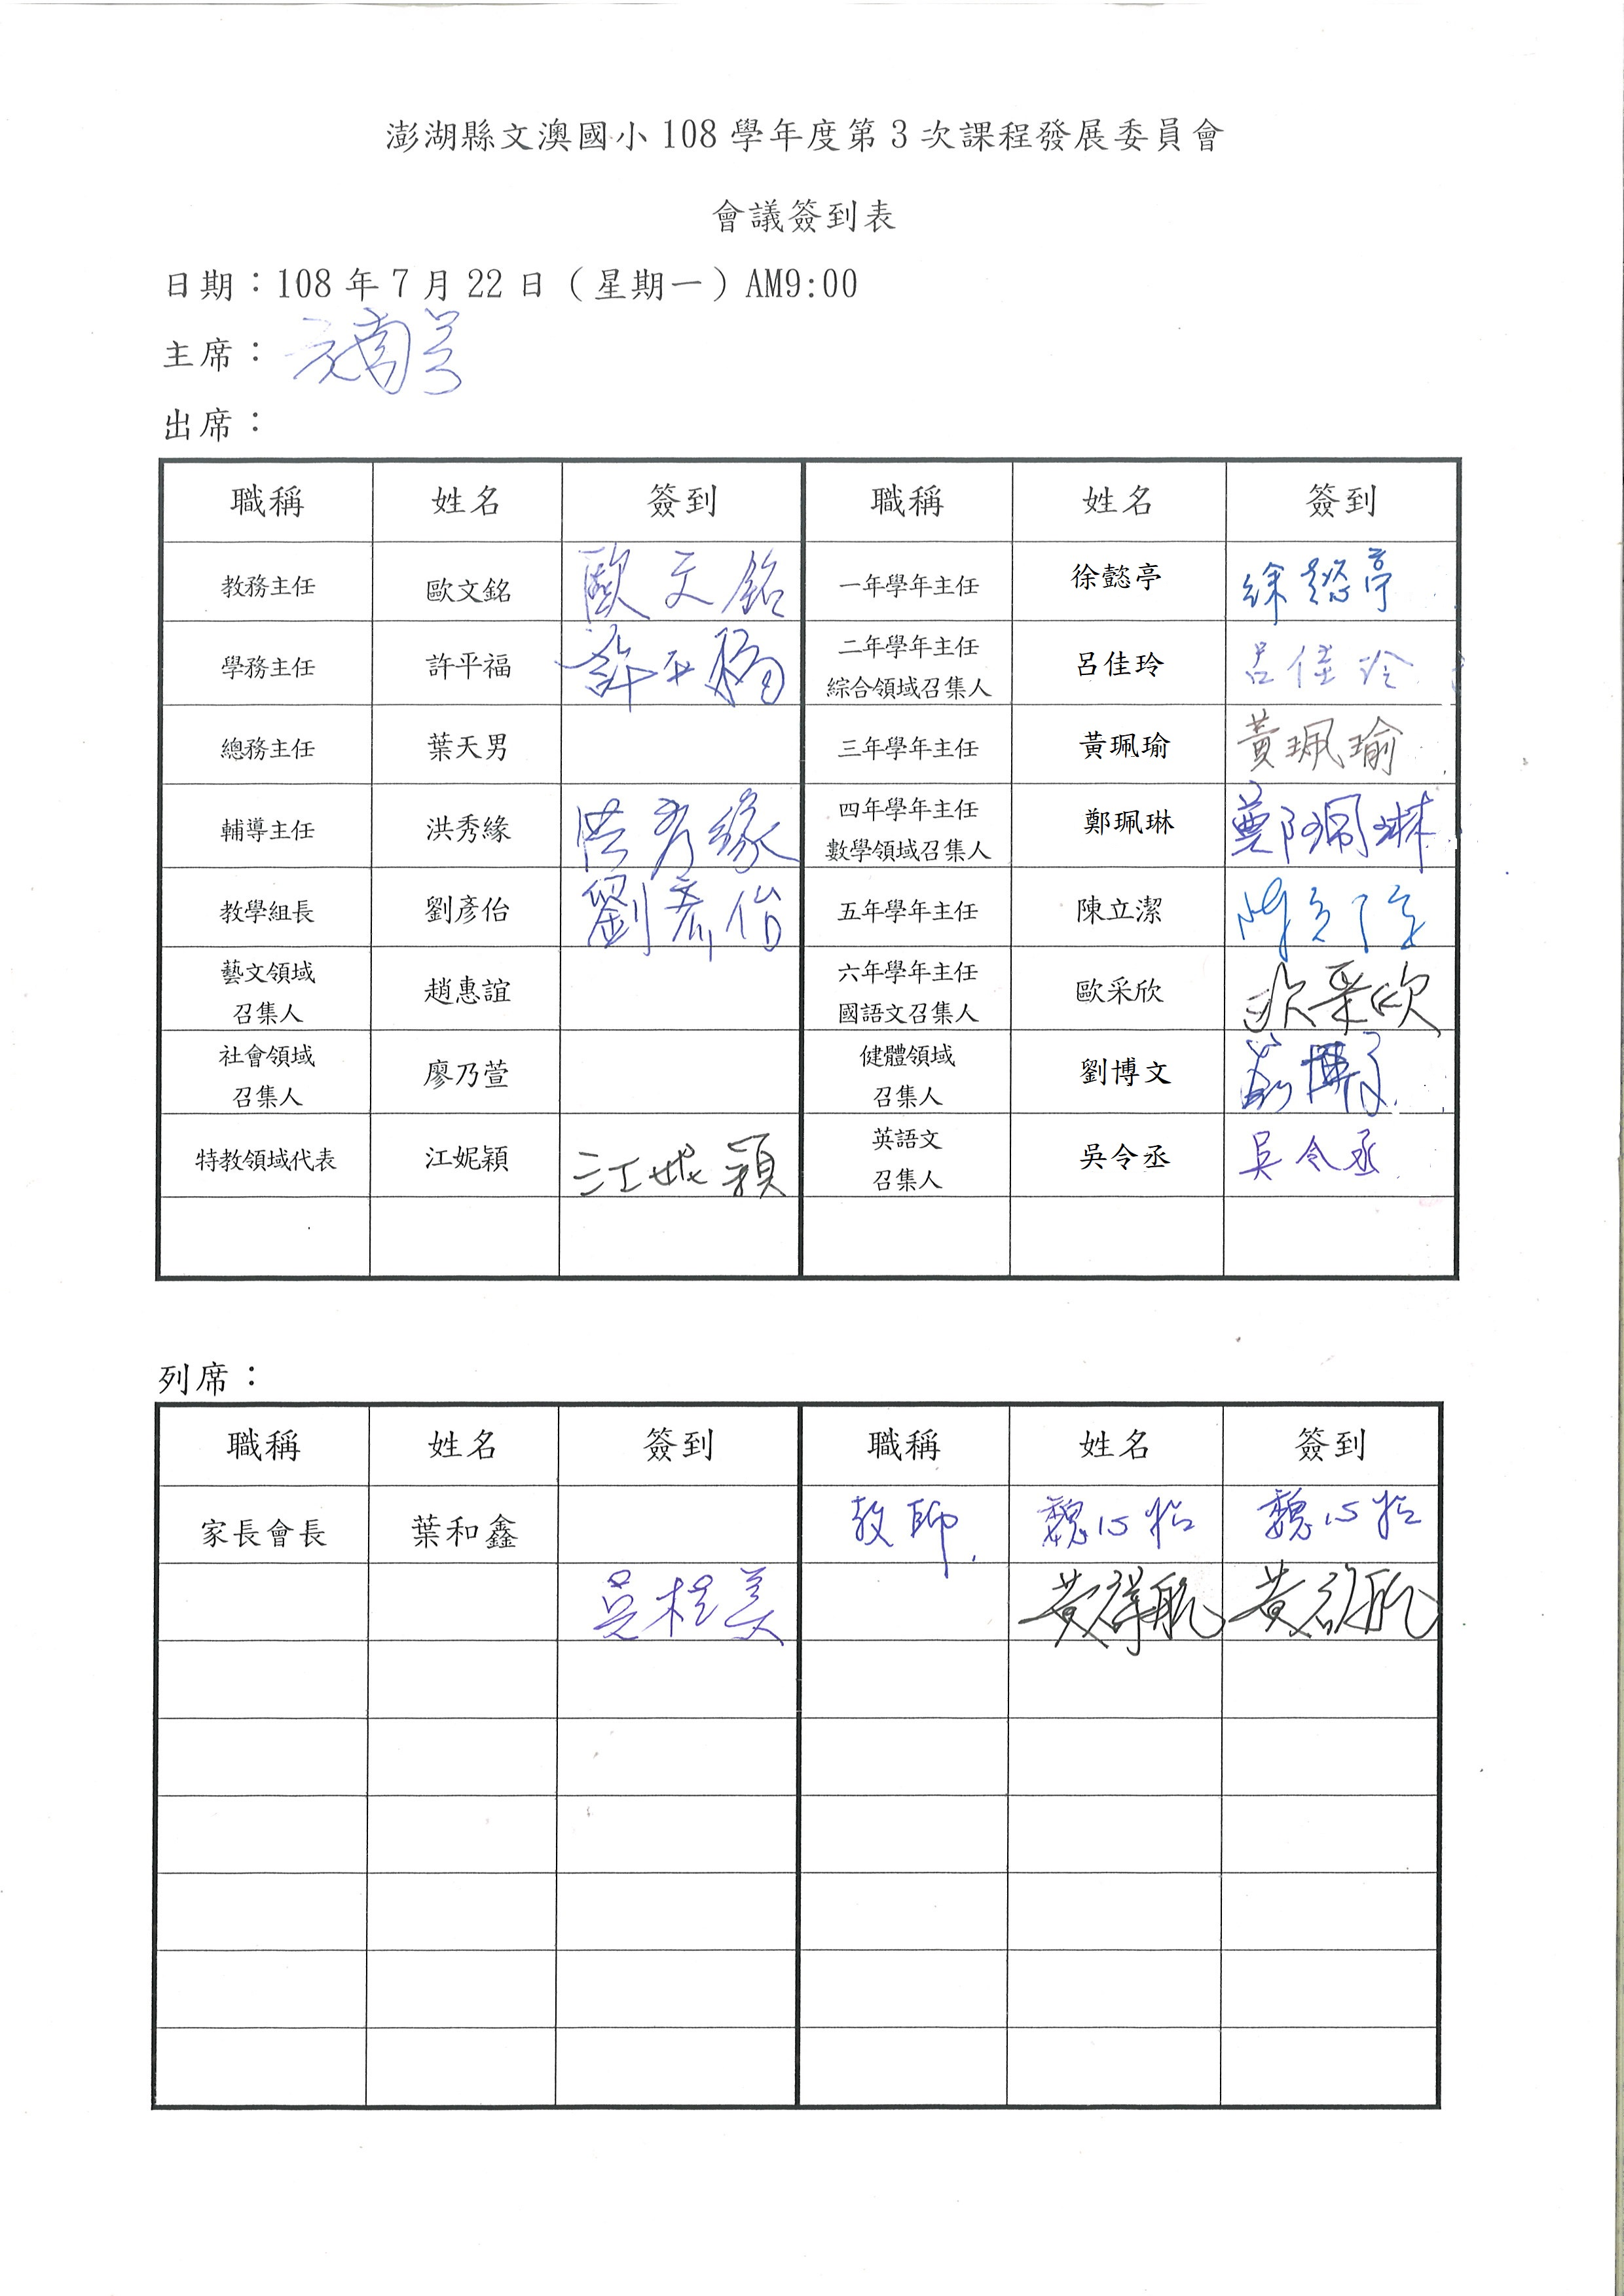 澎湖縣文澳國小 108 學年度第 3 次課程發展委員會
會議簽到表
日期：108 年 7 月 22 日（星期一）AM9:00
主席：
出席：
職稱 姓名 簽到 職稱 姓名 簽到
教務主任 歐文銘 歐文銘 一年學年主任 徐懿亭 徐懿亭
學務主任 許平福 許平福 二年學年主任 綜合領域召集人 呂佳玲 呂佳玲
總務主任 葉天男 三年學年主任 黃珮瑜 黃珮瑜
輔導主任 洪秀緣 洪秀緣 四年學年主任 數學領域召集人 鄭珮琳 鄭珮琳
教學組長 劉彥佁 劉彥佁 五年學年主任 陳立潔
藝文領域 召集人 趙惠誼 六年學年主任 國語文召集人 歐采欣 欧采欣
社會領域 召集人 廖乃萱 健體領域 召集人 劉博文 劉博文
特教領域代表 江妮穎 江妮穎 英語文 召集人 吳令丞 吳令丞
列席：
職稱 姓名 簽到 職稱 姓名 簽到
家長會長 葉和鑫 教師 魏心怡 魏心怡
黃群航 黃群航